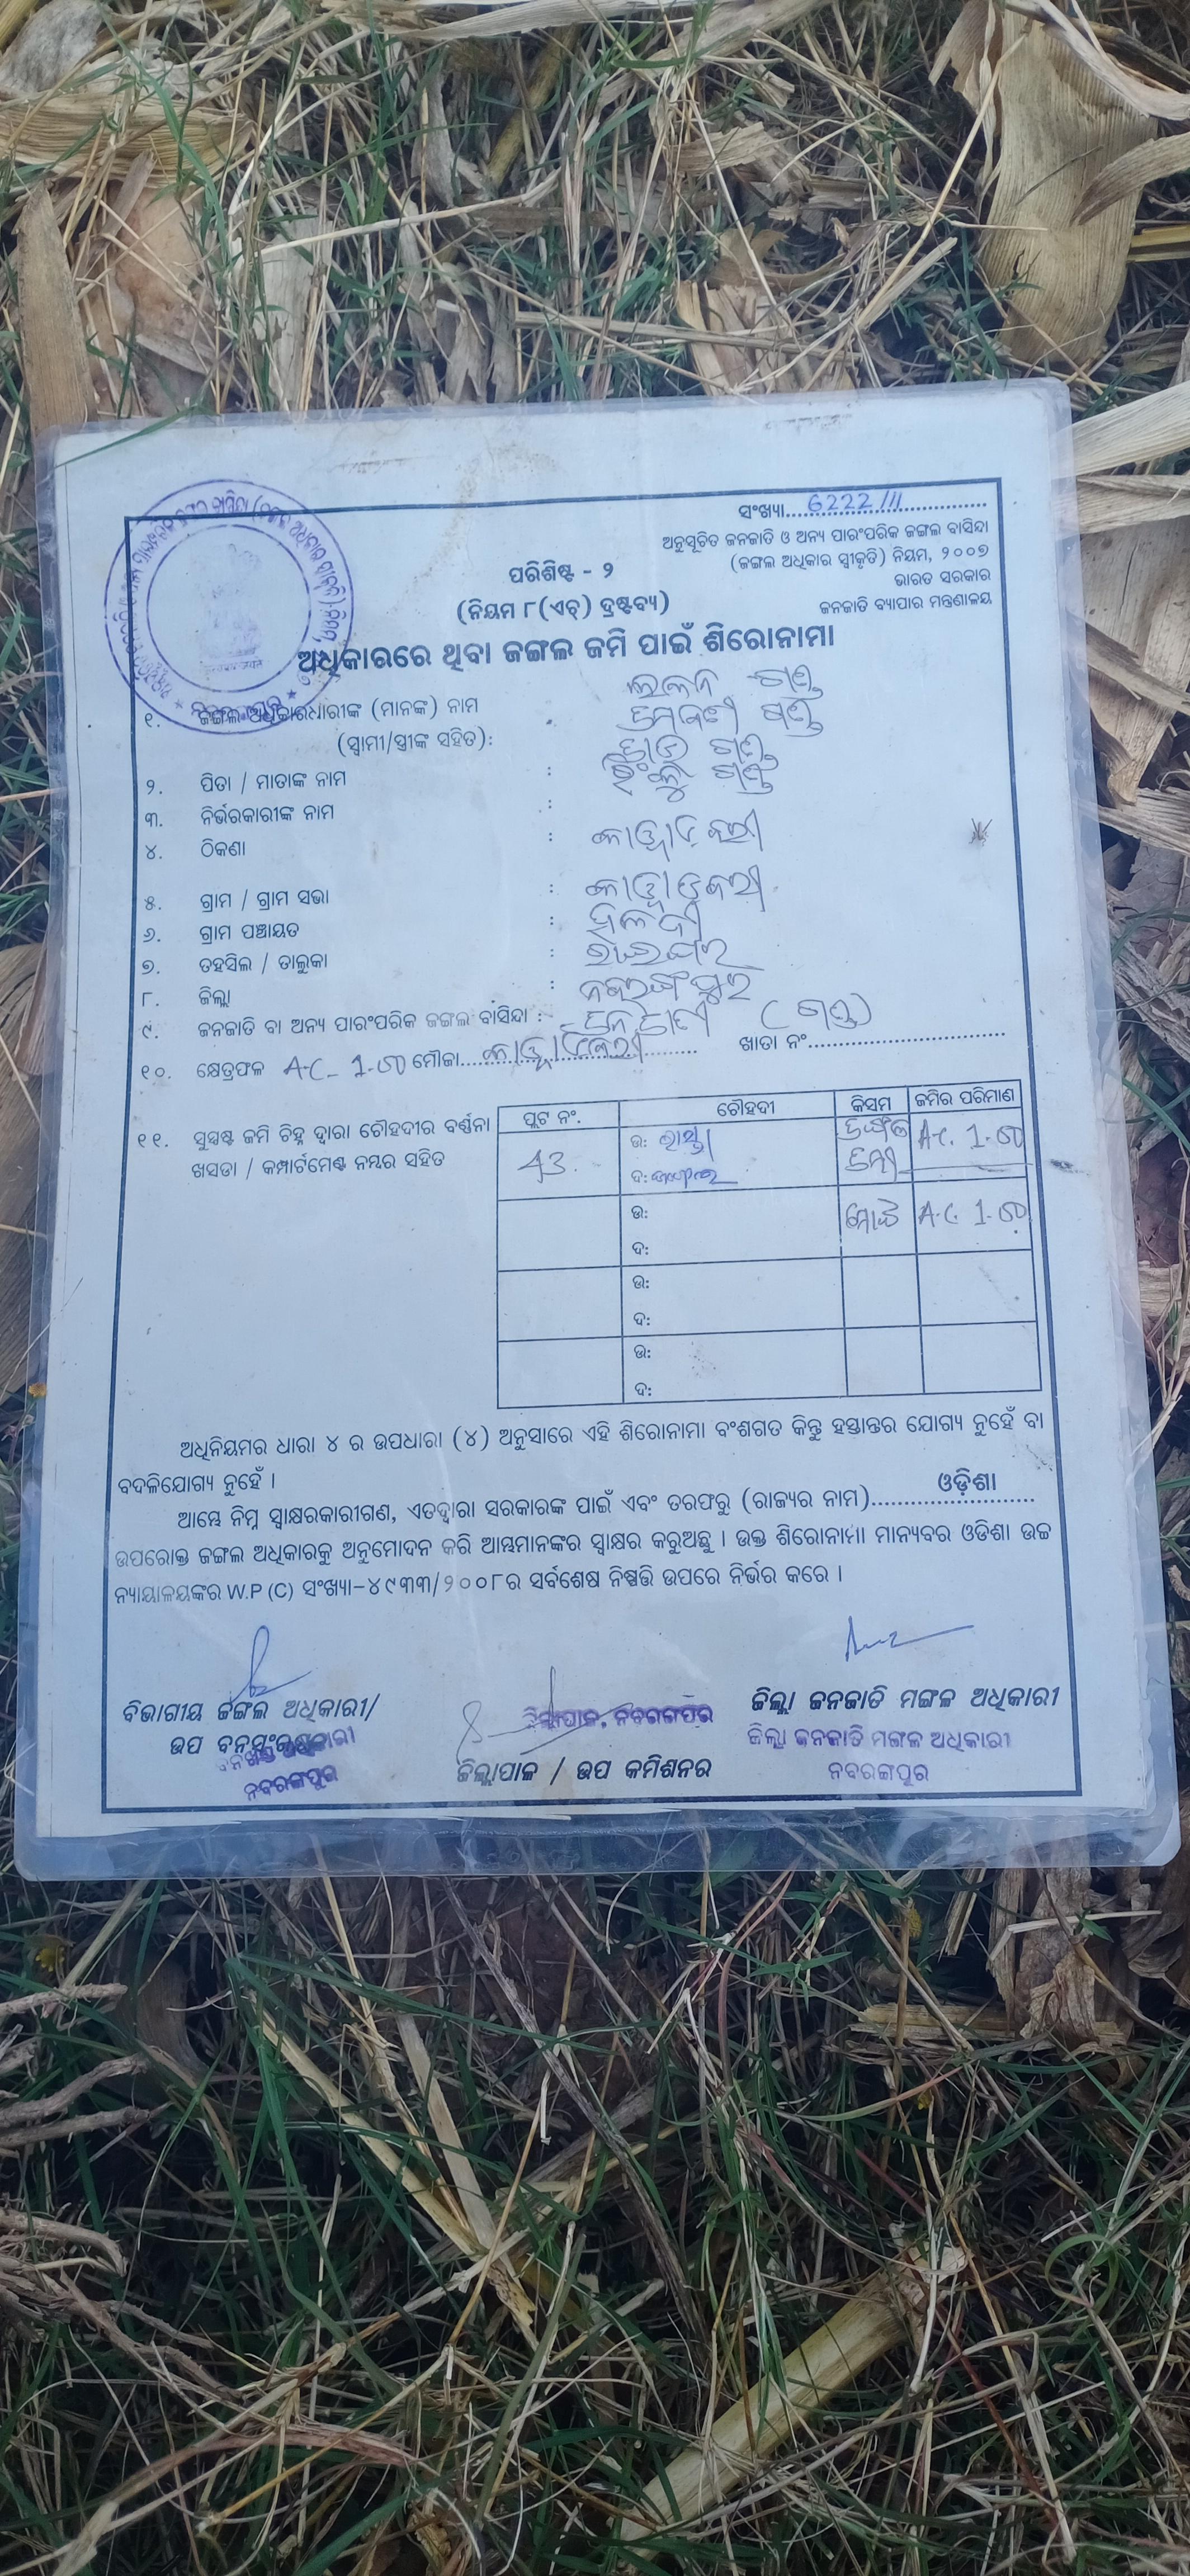 ସଂଖ୍ୟା.....6222/11
ଅନୁସୂଚିତ ଜନଜାତି ଓ ଅନ୍ୟ ପାରଂପରିକ ଜଙ୍ଗଲ ବାସିନ୍ଦା
(ଜଙ୍ଗଲ ଅଧିକାର ସ୍ୱୀକୃତି) ନିୟମ, ୨୦୦୭
ଭାରତ ସରକାର
ଜନଜାତି ବ୍ୟାପାର ମନ୍ତ୍ରଣାଳୟ
ପରିଶିଷ୍ଟ - ୨
(ନିୟମ ୮(ଏଚ୍) ଦ୍ରଷ୍ଟବ୍ୟ)
ଅଧିକାରରେ ଥିବା ଜଙ୍ଗଲ ଜମି ପାଇଁ ଶିରୋନାମା
୧. ଜଙ୍ଗଲ ଅଧିକାରଧାରୀଙ୍କ (ମାନଙ୍କ) ନାମ
(ସ୍ୱାମୀ/ସ୍ତ୍ରୀଙ୍କ ସହିତ):
୨. ପିତା / ମାତାଙ୍କ ନାମ :
୩. ନିର୍ଭରକାରୀଙ୍କ ନାମ :
୪. ଠିକଣା :
୫. ଗ୍ରାମ / ଗ୍ରାମ ସଭା :
୬. ଗ୍ରାମ ପଞ୍ଚାୟତ :
୭. ତହସିଲ / ତାଲୁକା : ରାଇଘର
୮. ଜିଲ୍ଲା : ନବରଙ୍ଗପୁର
୯. ଜନଜାତି ବା ଅନ୍ୟ ପାରଂପରିକ ଜଙ୍ଗଲ ବାସିନ୍ଦା : ଜନଜାତି (ଗଣ୍ଡ)
୧୦. କ୍ଷେତ୍ରଫଳ A.C_ 1.50 ମୌଜା..... ଖାତା ନଂ.....
୧୧. ସୁସ୍ପଷ୍ଟ ଜମି ଚିହ୍ନ ଦ୍ୱାରା ଚୌହଦୀର ବର୍ଣ୍ଣନା
ଖସଡା / କମ୍ପାର୍ଟମେଣ୍ଟ ନମ୍ବର ସହିତ
ପ୍ଲଟ ନଂ. ଚୌହଦୀ କିସମ ଜମିର ପରିମାଣ
43. ଉ: ରାସ୍ତା ଜଙ୍ଗଲ A.C. 1.50
ଦ: ଜମି
ଉ: ମୋଟ A.C. 1.50
ଦ:
ଉ:
ଦ:
ଉ:
ଦ:
ଅଧିନିୟମର ଧାରା ୪ ର ଉପଧାରା (୪) ଅନୁସାରେ ଏହି ଶିରୋନାମା ବଂଶଗତ କିନ୍ତୁ ହସ୍ତାନ୍ତର ଯୋଗ୍ୟ ନୁହେଁ ବା
ବଦଳିଯୋଗ୍ୟ ନୁହେଁ ।
ଆମ୍ଭେ ନିମ୍ନ ସ୍ୱାକ୍ଷରକାରୀଗଣ, ଏତଦ୍ୱାରା ସରକାରଙ୍କ ପାଇଁ ଏବଂ ତରଫରୁ (ରାଜ୍ୟର ନାମ).....ଓଡ଼ିଶା.....
ଉପରୋକ୍ତ ଜଙ୍ଗଲ ଅଧିକାରକୁ ଅନୁମୋଦନ କରି ଆମ୍ଭମାନଙ୍କର ସ୍ୱାକ୍ଷର କରୁଅଛୁ । ଉକ୍ତ ଶିରୋନାମା ମାନ୍ୟବର ଓଡିଶା ଉଚ୍ଚ
ନ୍ୟାୟାଳୟଙ୍କର W.P (C) ସଂଖ୍ୟା-୪୯୩୩/୨୦୦୮ର ସର୍ବଶେଷ ନିଷ୍ପତ୍ତି ଉପରେ ନିର୍ଭର କରେ ।
ବିଭାଗୀୟ ଜଙ୍ଗଲ ଅଧିକାରୀ/
ଉପ ବନସଂରକ୍ଷକ
ନବରଙ୍ଗପୁର
ଜିଲ୍ଲାପାଳ, ନବରଙ୍ଗପୁର
ଜିଲ୍ଲାପାଳ / ଉପ କମିଶନର
ଜିଲ୍ଲା ଜନଜାତି ମଙ୍ଗଳ ଅଧିକାରୀ
ଜିଲ୍ଲା ଜନଜାତି ମଙ୍ଗଳ ଅଧିକାରୀ
ନବରଙ୍ଗପୁର